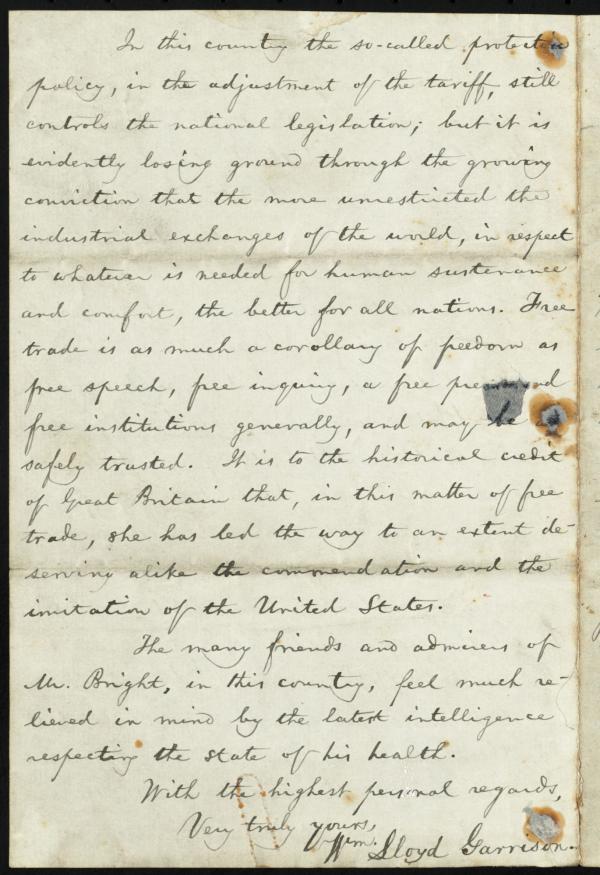 In this country the so-called protective
policy, in the adjustment of the tariff, still
controls the national legislation; but it is
evidently losing ground through the growing
conviction that the more unrestricted the
industrial exchanges of the world, in respect
to whatever is needed for human sustenance
and comfort, the better for all nations. Free
trade is as much a corollary of freedom as
free speech, free inquiry, a free press and
free institutions generally, and may be as
safely trusted. It is to the historical credit
of Great Britain that, in this matter of free
trade, she has led the way to an extent de-
serving alike the commendation and the
imitation of the United States.
The many friends and admirers of
Mr. Bright, in this country, feel much re-
lieved in mind by the latest intelligence
respecting the state of his health.
With the highest personal regards,
Very truly yours,
Wm. Lloyd Garrison.